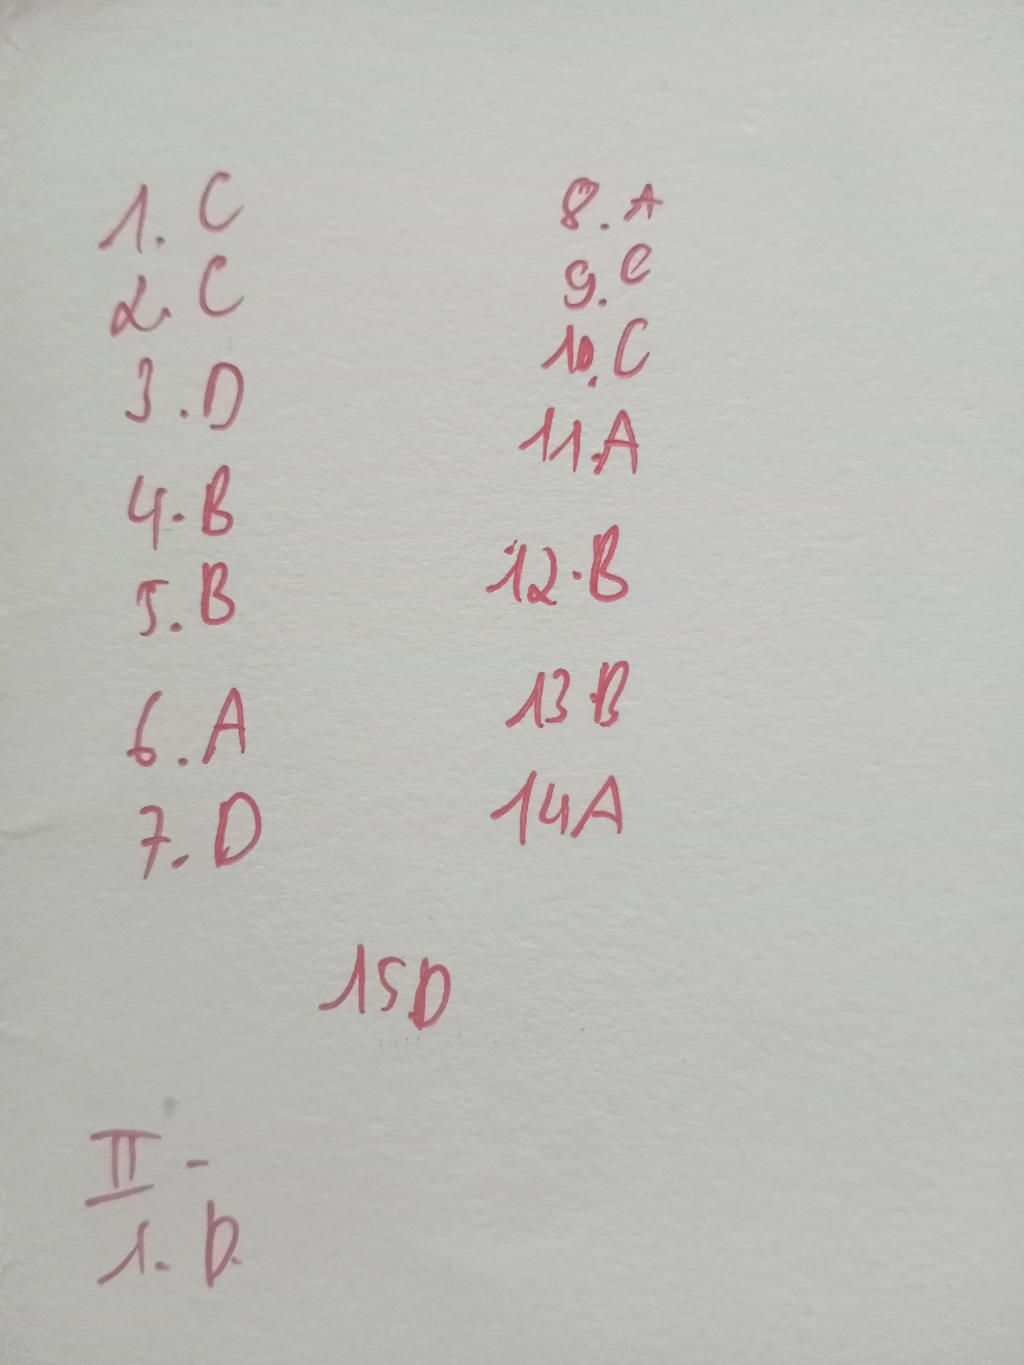 1. C
2. C
3. D
4. B
5. B
6. A
7. D
8. A
9. C
10. C
11. A
12. B
13 B
14 A
15 D
II -
1. D.